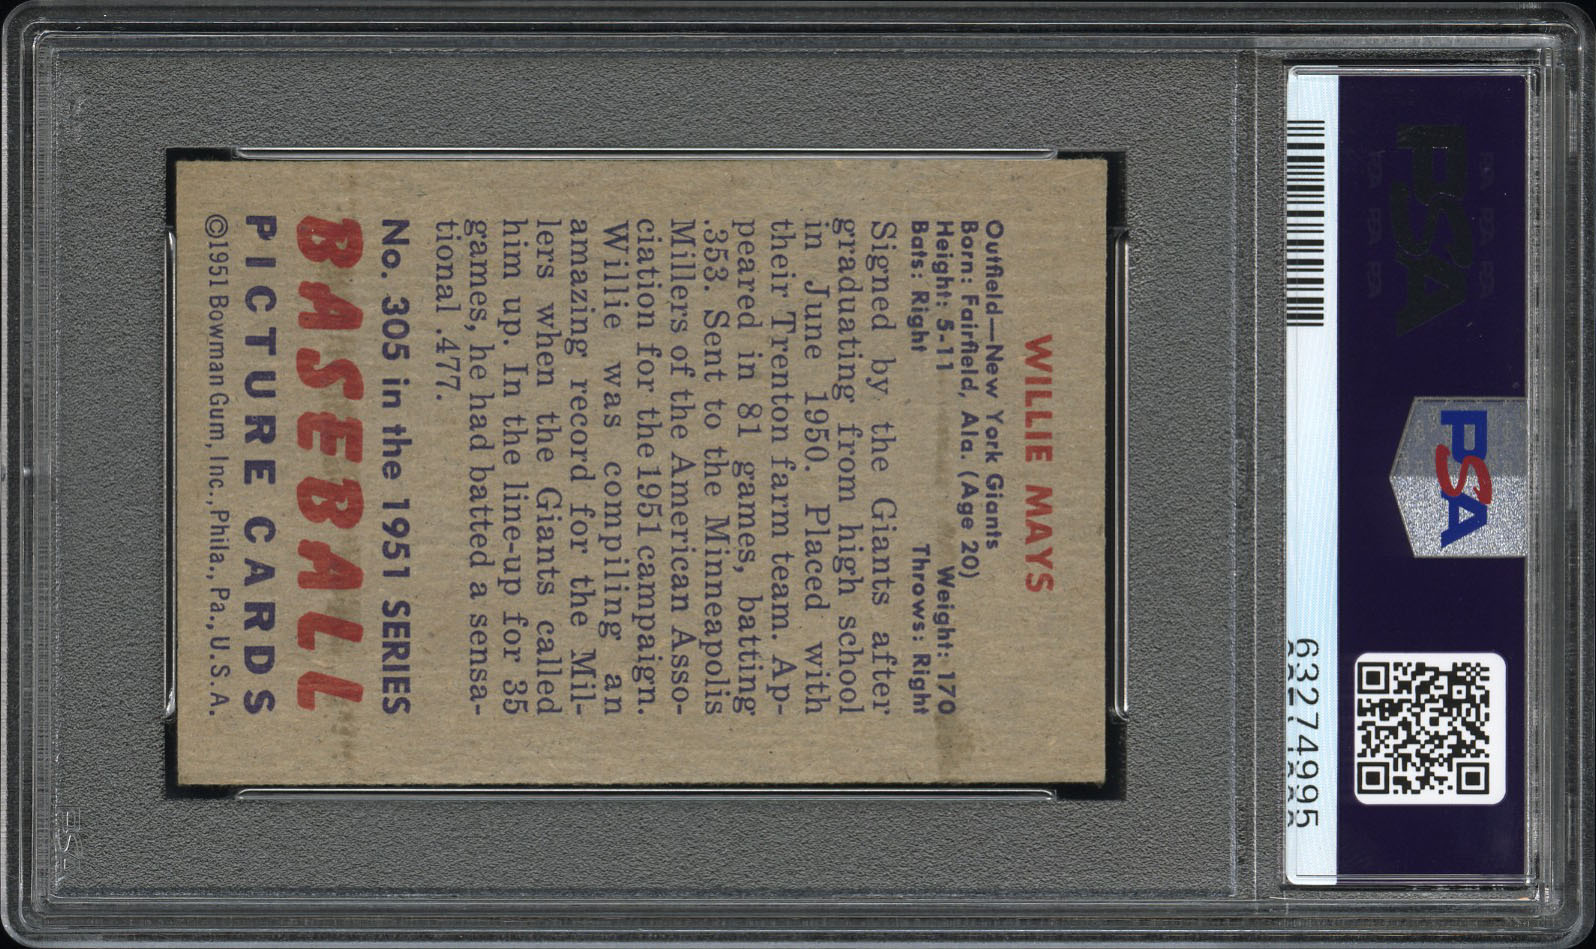 WILLIE MAYS
Outfield—New York Giants
Born: Fairfield, Ala. (Age 20)
Height: 5-11 Weight: 170
Bats: Right Throws: Right
Signed by the Giants after
graduating from high school
in June 1950. Placed with
their Trenton farm team. Ap-
peared in 81 games, batting
.353. Sent to the Minneapolis
Millers of the American Asso-
ciation for the 1951 campaign.
Willie was compiling an
amazing record for the Mil-
lers when the Giants called
him up. In the line-up for 35
games, he had batted a sensa-
tional .477.
No. 305 in the 1951 SERIES
BASEBALL
PICTURE CARDS
©1951 Bowman Gum, Inc., Phila., Pa., U.S.A.
PSA
PSA
63274995